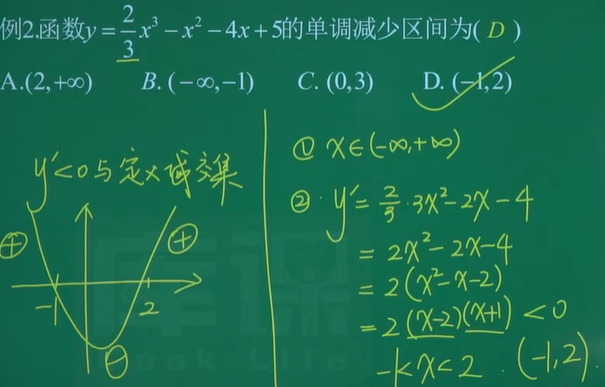 例2.函数y=\frac{2}{3}x³-x²-4x+5的单调减少区间为( D )
A.(2,+∞) B.(-∞,-1) C.(0,3) D.(-1,2)
y'<0与定义域交集
⊕ ⊕
-1 2
⊖
① x∈(-∞,+∞)
②. y'=\frac{2}{3}·3x²-2x-4
=2x²-2x-4
=2(x²-x-2)
=2(x-2)(x+1)<0
-1<x<2.(-1,2).
库课
Book Life